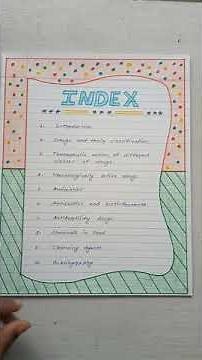 INDEX
1. Introduction
2. Drugs and their classification
3. Therapeutic action of different
classes of drugs.
4. Neurologically active drugs
5.
6. Antiseptics and disinfectants
7. Antifertility drugs
8. Chemicals in food
9. Cleansing Agents
10. Bibliography